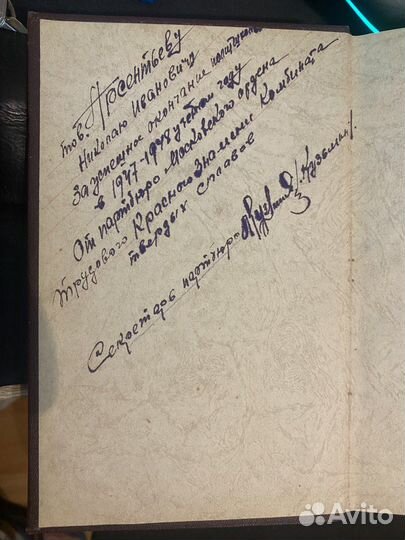 тов. Арсентьеву
Николаю Ивановичу
За успешное окончание политшколы
в 1947-1948 учебном году
От партбюро Московского ордена
Трудового Красного Знамени Комбината
твердых сплавов
Секретарь партбюро /Кузьмин/
Avito